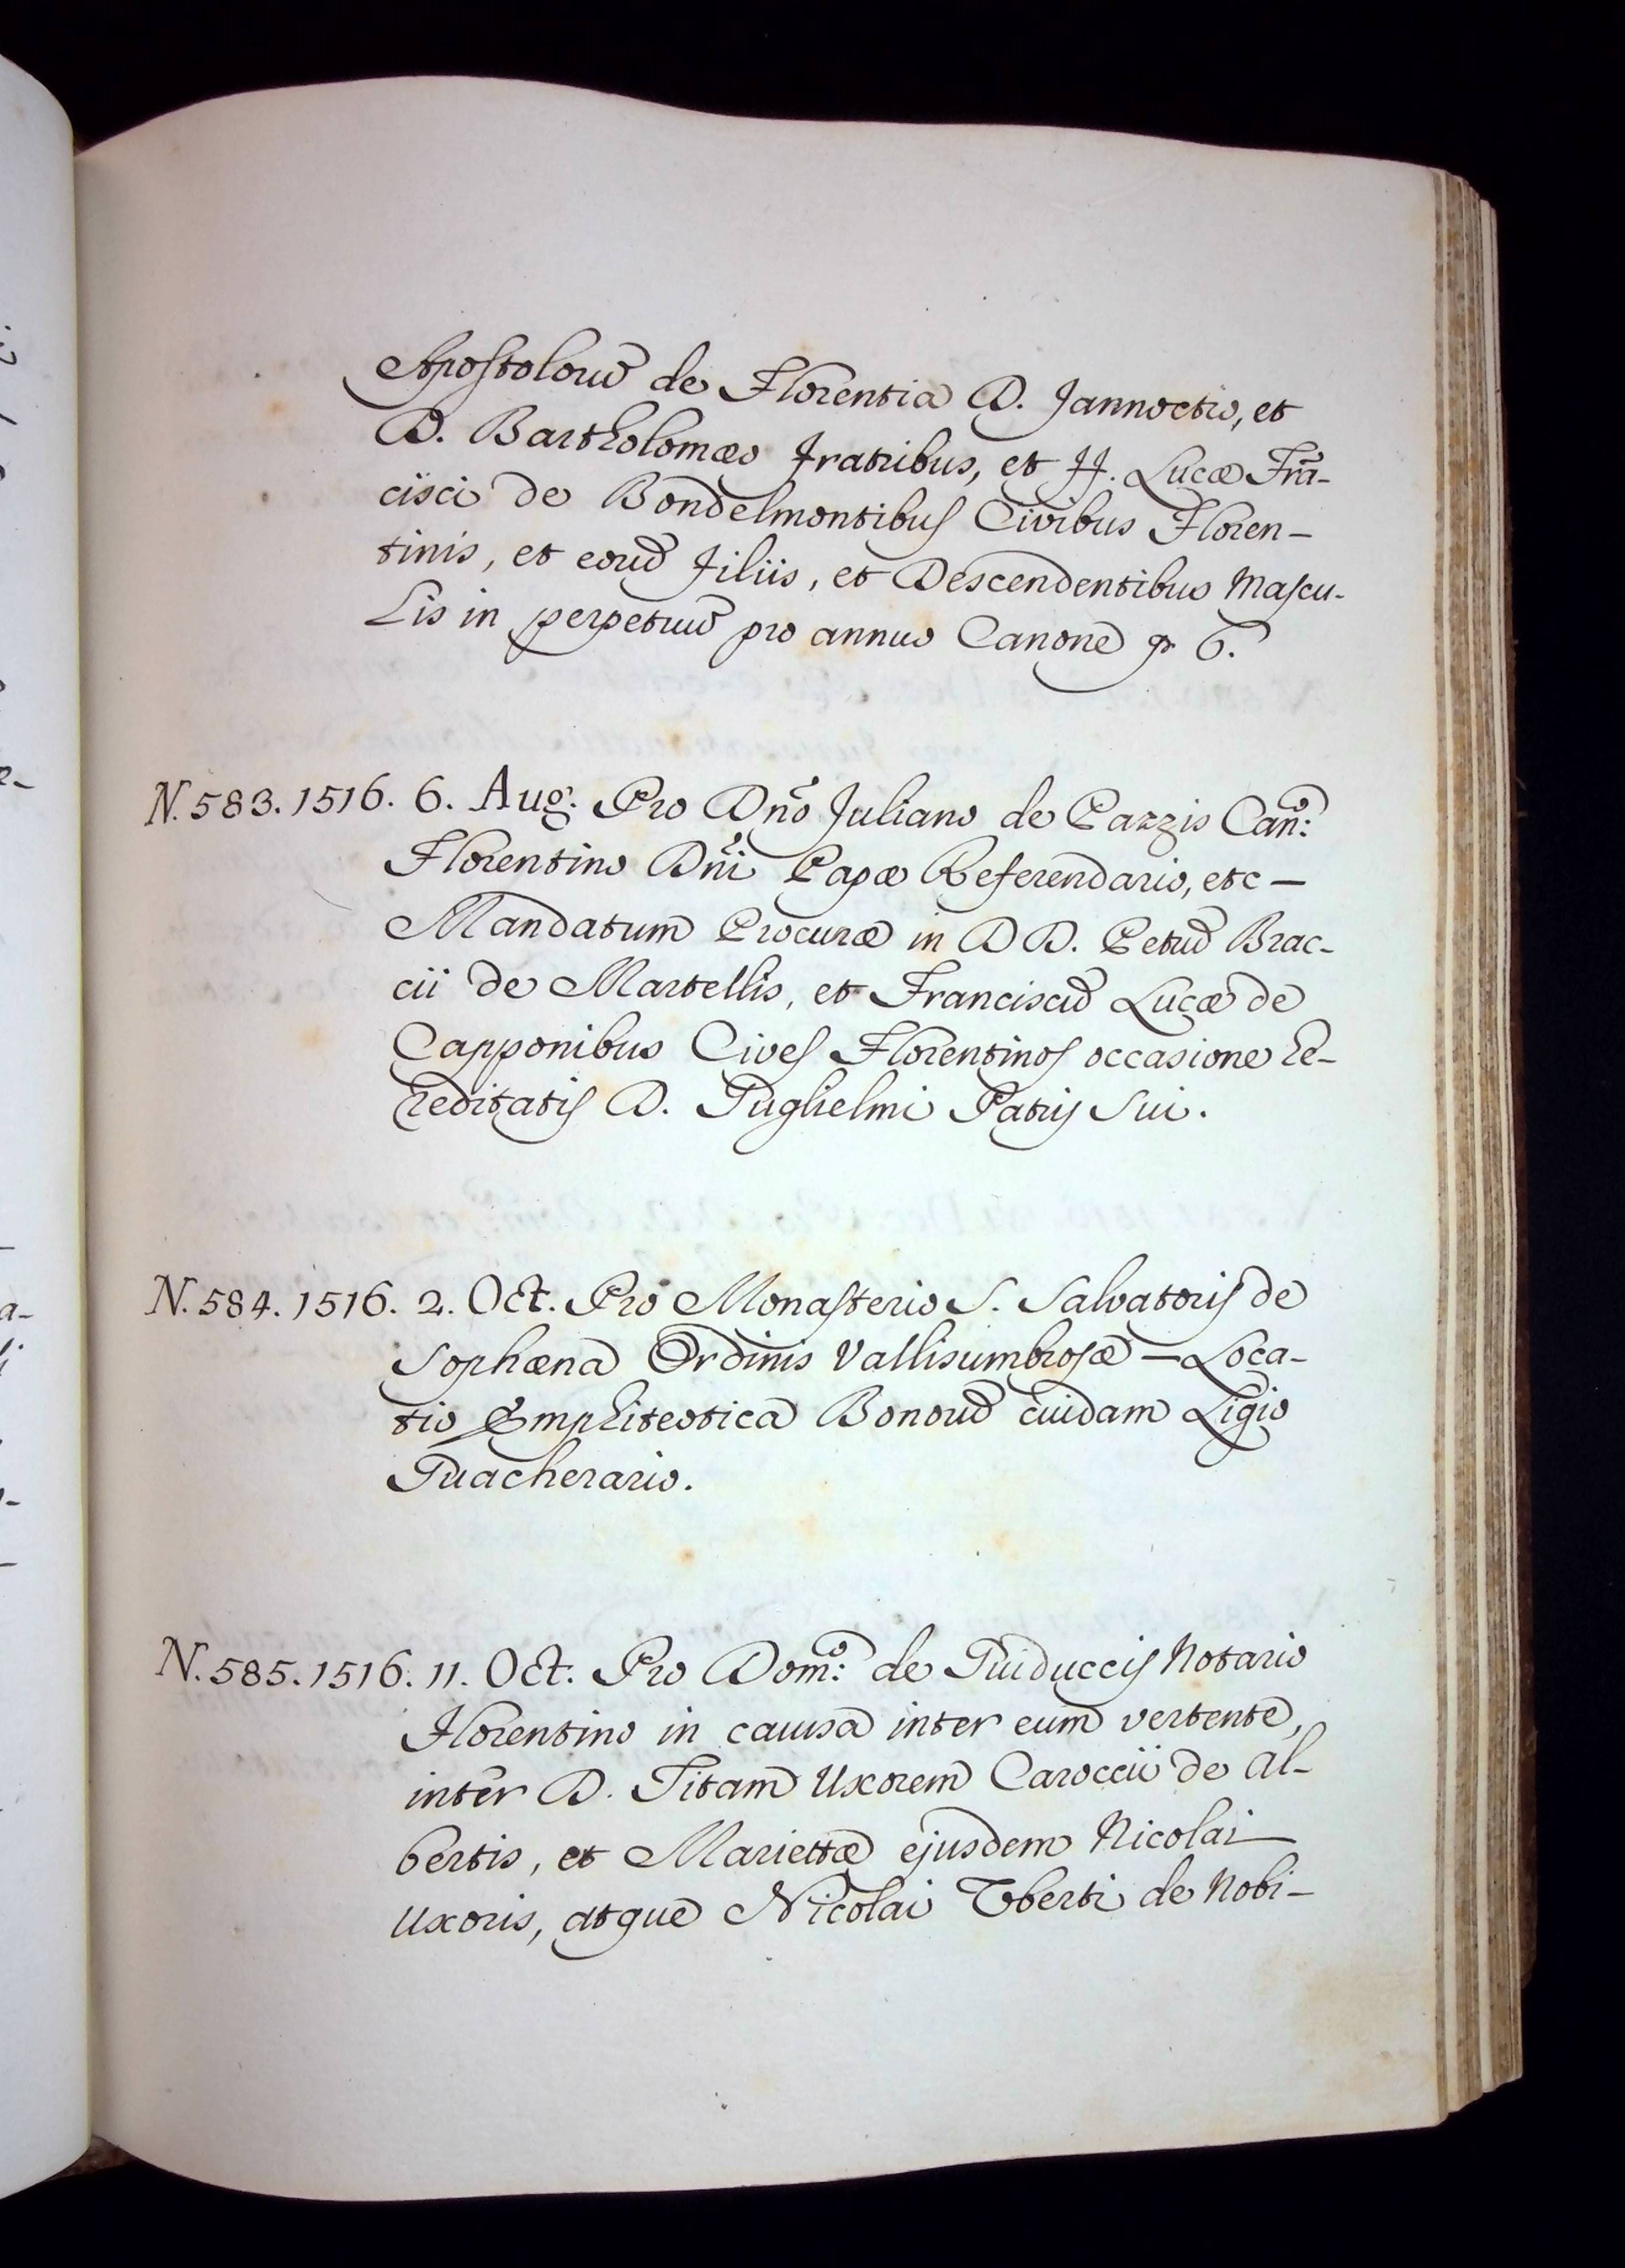 Apostoloruʒ de Florentia D. Jannoctio, et
D. Bartholomæo Fratribus, et FF. Lucæ Frã-
cisci de Bondelmontibus Civibus Floren-
tinis, et eoruʒ Filiis, et Descendentibus Mascu-
lis in perpetuuʒ pro annuo Canone 6.
N. 583. 1516. 6. Aug. Pro Dno Juliano de Pazzis Can:
Florentino Dni Papæ Referendario, etc —
Mandatum Procuræ in DD. Petruʒ Brac-
cii de Martellis, et Franciscuʒ Lucæ de
Capponibus Cives Florentinos occasione he-
reditatis D. Guglielmi Patris Sui.
N. 584. 1516. 2. Oct. Pro Monasterio S. Salvatoris de
Sophæna Ordinis Vallisumbrosæ — Loca-
tio Emphiteotica Bonoruʒ cuidam Ligio
Guacherario.
N. 585. 1516. 11. Oct. Pro Domº: de Guiduccis Notario
Florentino in causa inter eum vertente,
inter D. Titam Uxorem Caroccii de Al-
bertis, et Mariettæ ejusdem Nicolai
Uxoris, atque Nicolai Uberti de Nobi-